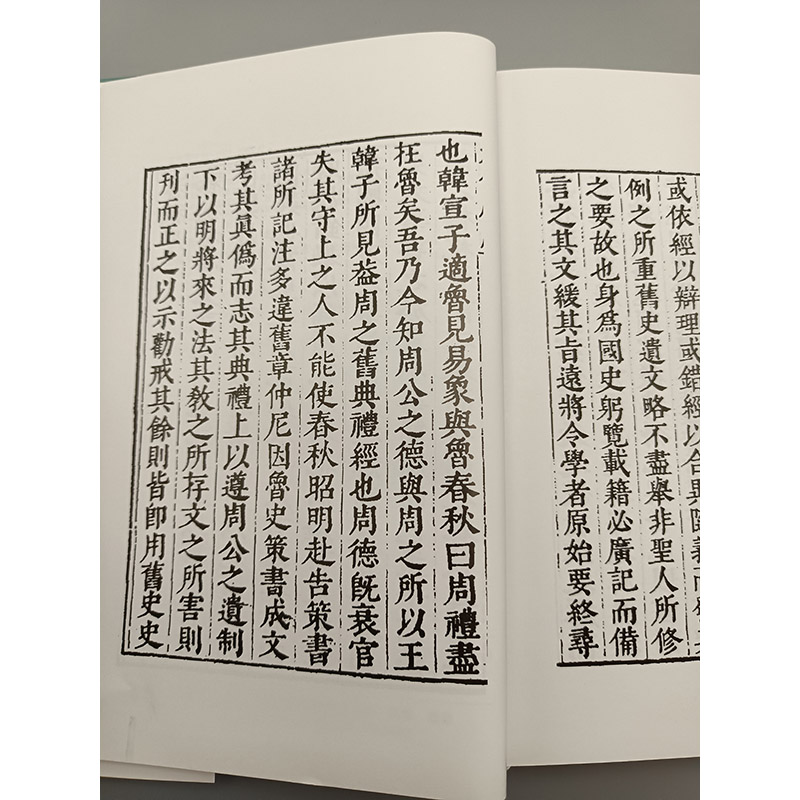 或依經以辯理或錯經以合異隨義而
例之所重舊史遺文略不盡舉非聖人所修
之要故也身爲國史躬覽載籍必廣記而備
言之其文緩其旨遠將令學者原始要終尋
也韓宣子適魯見易象與魯春秋曰周禮盡
在魯矣吾乃今知周公之德與周之所以王
韓子所見蓋周之舊典禮經也周德旣衰官
失其守上之人不能使春秋昭明赴告策書
諸所記注多違舊章仲尼因魯史策書成文
考其眞僞而志其典禮上以遵周公之遺制
下以明將來之法其教之所存文之所害則
刋而正之以示勸戒其餘則皆卽用舊史史